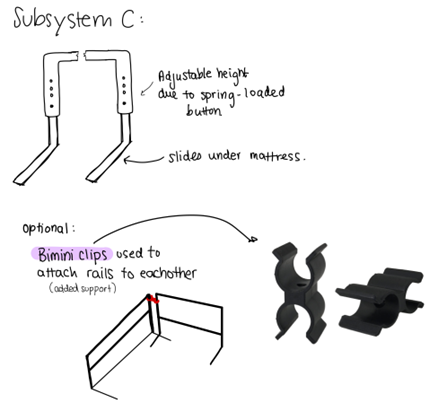 Subsystem C:
Adjustable height
due to spring-loaded
button
slides under mattress.
optional:
Bimini clips used to
attach rails to eachother
(added support)